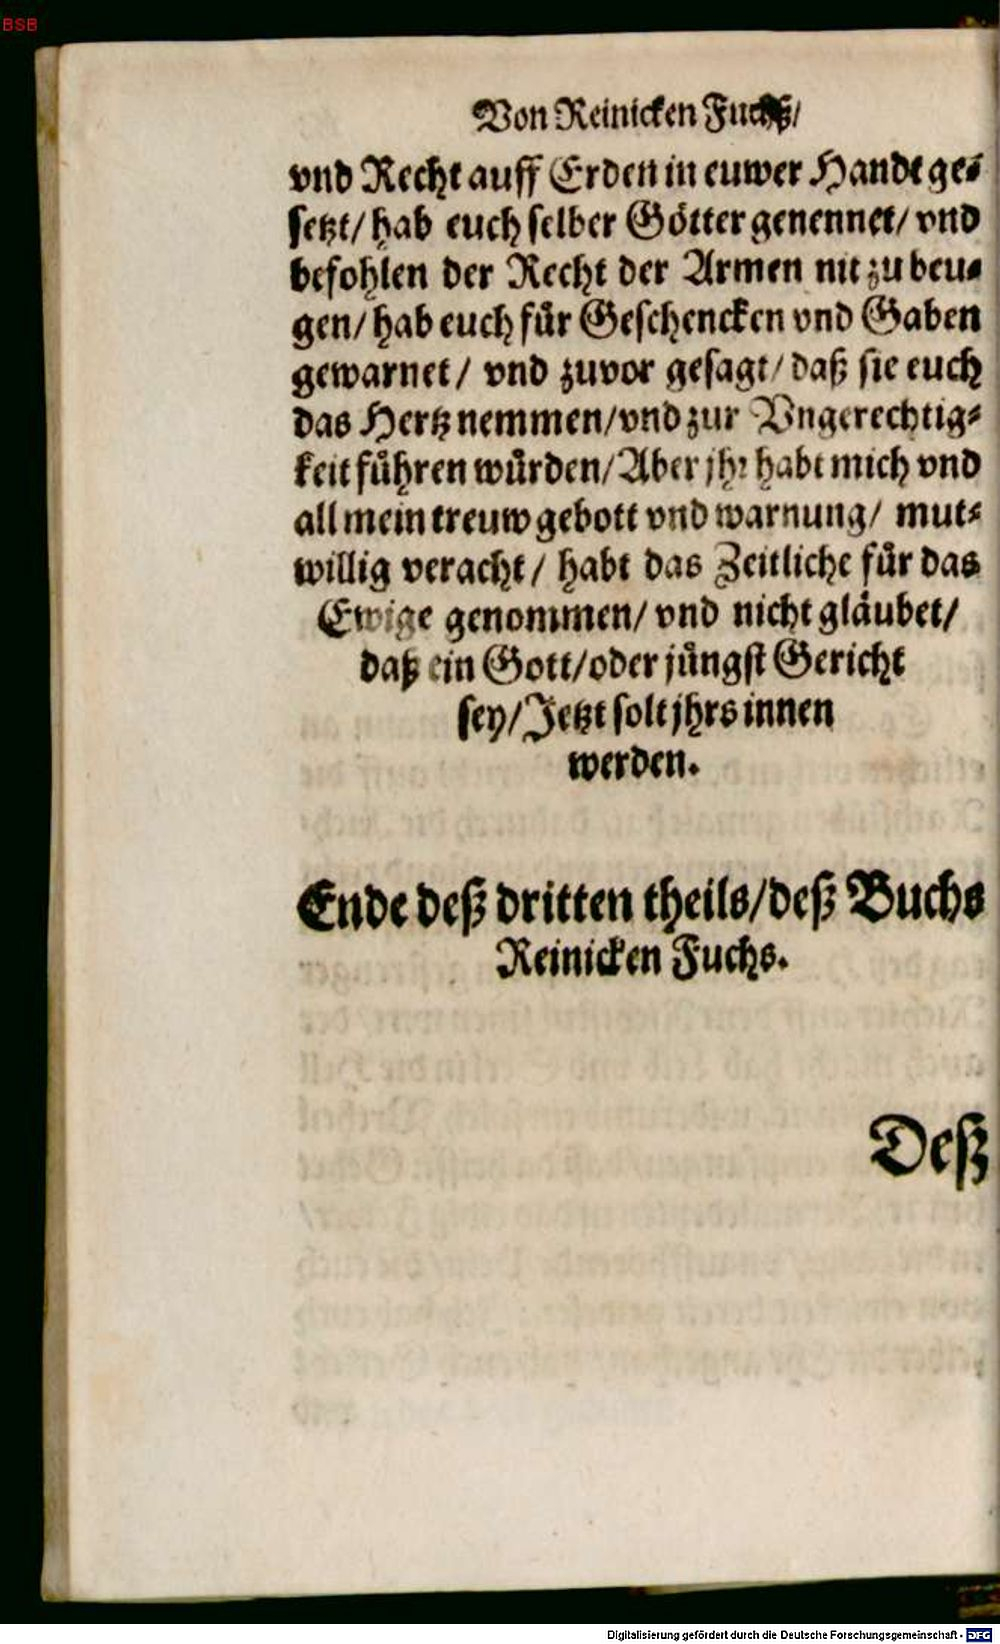 BSB
Von Reinicken Fuchß/
vnd Recht auff Erden in euwer Handt ge⸗
setzt/ hab euch selber Götter genennet/ vnd
befohlen der Recht der Armen nit zu beu⸗
gen/ hab euch für Geschencken vnd Gaben
gewarnet/ vnd zuvor gesagt/ daß sie euch
das Hertz nemmen/ vnd zur Vngerechtig⸗
keit führen würden/ Aber jhr habt mich vnd
all mein treuw gebott vnd warnung/ mut⸗
willig veracht/ habt das Zeitliche für das
Ewige genommen/ vnd nicht gläubet/
daß ein Gott/ oder jüngst Gericht
sey/ Jetzt solt jhrs innen
werden.
Ende deß dritten theils/ deß Buchs
Reinicken Fuchs.
Deß
Digitalisierung gefördert durch die Deutsche Forschungsgemeinschaft - DFG